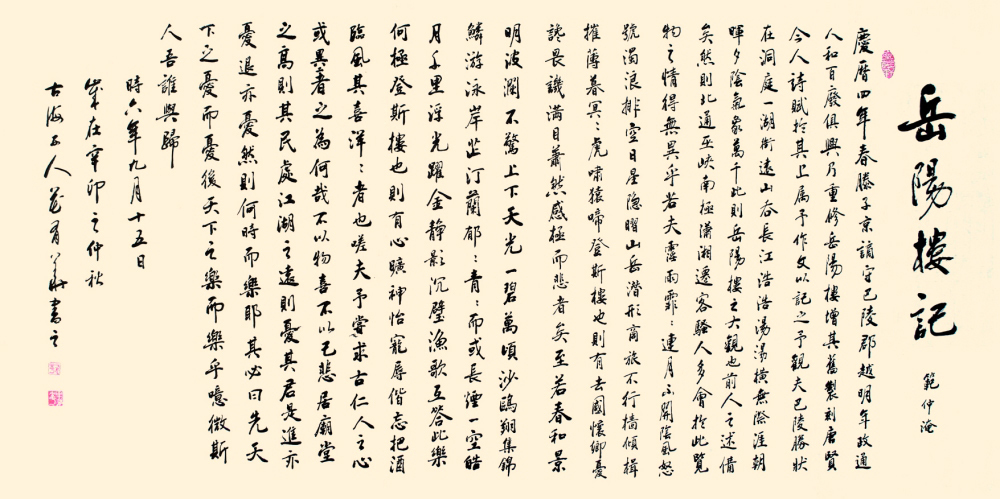 岳陽樓記
範仲淹
慶曆四年春滕子京謫守巴陵郡越明年政通
人和百廢俱興乃重修岳陽樓增其舊製刻唐賢
今人詩賦於其上属予作文以記之予觀夫巴陵勝狀
在洞庭一湖銜遠山吞長江浩浩湯湯橫無際涯朝
暉夕陰氣象萬千此則岳陽樓之大觀也前人之述備
矣然則北通巫峽南極瀟湘遷客騷人多會於此覽
物之情得無異乎若夫霪雨霏：連月不開陰風怒
號濁浪排空日星隱曜山岳潛形商旅不行檣傾楫
摧薄暮冥：虎嘯猿啼登斯樓也則有去國懷鄉憂
讒畏譏滿目蕭然感極而悲者矣至若春和景
明波瀾不驚上下天光一碧萬頃沙鷗翔集錦
鱗游泳岸芷汀蘭郁：青：而或長煙一空皓
月千里浮光躍金靜影沉璧漁歌互答此樂
何極登斯樓也則有心曠神怡寵辱偕忘把酒
臨風其喜洋：者也嗟夫予嘗求古仁人之心
或異者之為何哉不以物喜不以己悲居廟堂
之高則其民處江湖之遠則憂其君是進亦
憂退亦憂然則何時而樂耶其必曰先天
下之憂而憂後天下之樂而樂乎噫微斯
人吾誰與歸
時六年九月十五日
歲在辛卯之仲秋
古海 人 書之